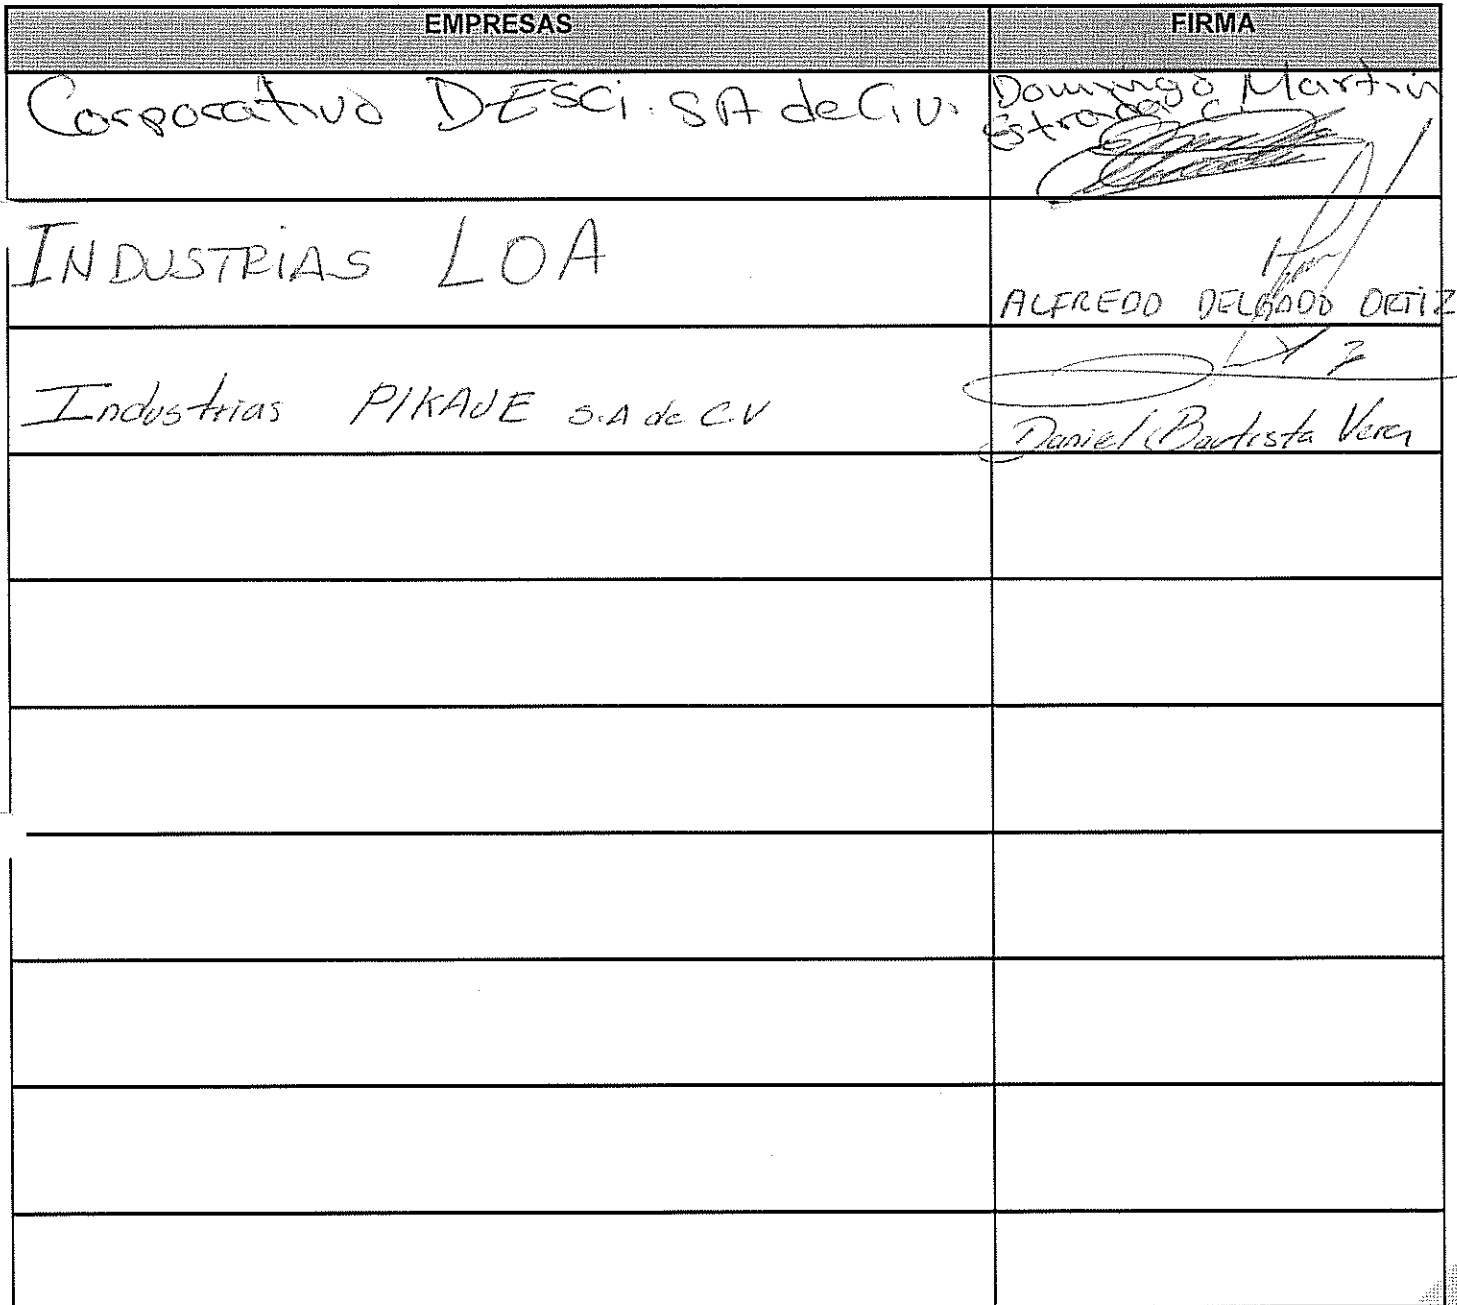 EMPRESAS FIRMA
Corporativo DESCi. SA de C.V. Domingo Martin
Estrada C.
INDUSTRIAS LOA
ALFREDO DELGADO ORTIZ
Industrias PIKAJE S.A de C.V
Daniel Bautista Vera